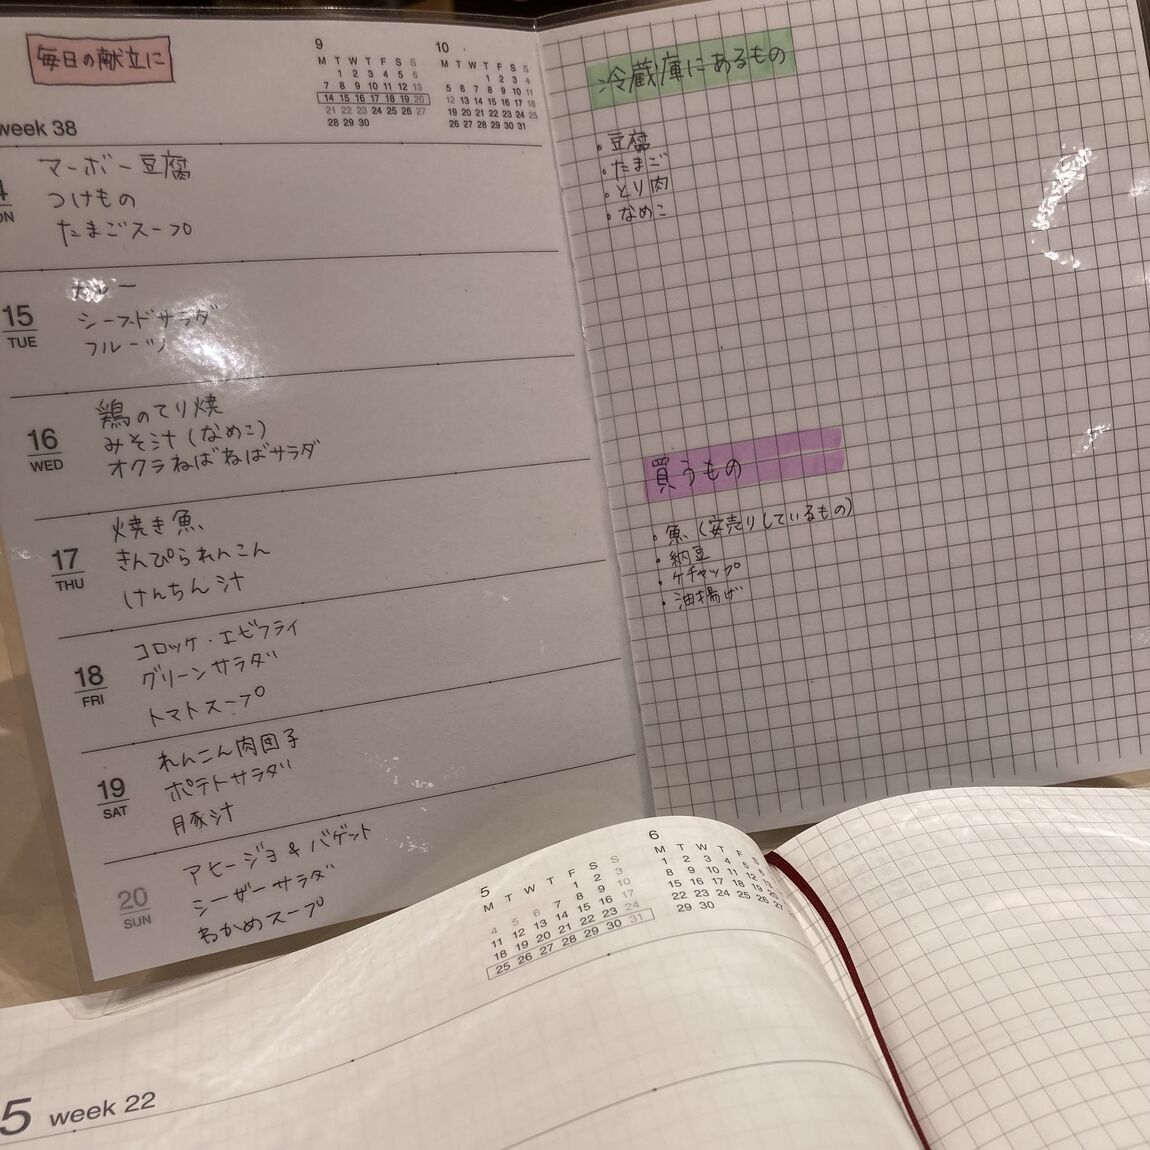 毎日の献立に
9
M T W T F S S
1 2 3 4 5 6
7 8 9 10 11 12 13
14 15 16 17 18 19 20
21 22 23 24 25 26 27
28 29 30
10
M T W T F S S
1 2 3 4
5 6 7 8 9 10 11
12 13 14 15 16 17 18
19 20 21 22 23 24 25
26 27 28 29 30 31
week 38
マーボー豆腐
つけもの
たまごスープ
15
TUE
カレー
シーフードサラダ
フルーツ
16
WED
鶏のてり焼
みそ汁(なめこ)
オクラねばねばサラダ
17
THU
焼き魚
きんぴられんこん
けんちん汁
18
FRI
コロッケ・エビフライ
グリーンサラダ
トマトスープ
19
SAT
れんこん肉団子
ポテトサラダ
豚汁
20
SUN
アヒージョ & バゲット
シーザーサラダ
わかめスープ
冷蔵庫にあるもの
・豆腐
・たまご
・とり肉
・なめこ
買うもの
・魚(安売りしているもの)
・納豆
・ケチャップ
・油揚げ
5
M T W T F S S
1 2 3
4 5 6 7 8 9 10
11 12 13 14 15 16 17
18 19 20 21 22 23 24
25 26 27 28 29 30 31
6
M T W T F S
1 2 3 4 5 6
8 9 10 11 12 13
15 16 17 18 19 20
22 23 24 25 26 27
29 30
5 week 22